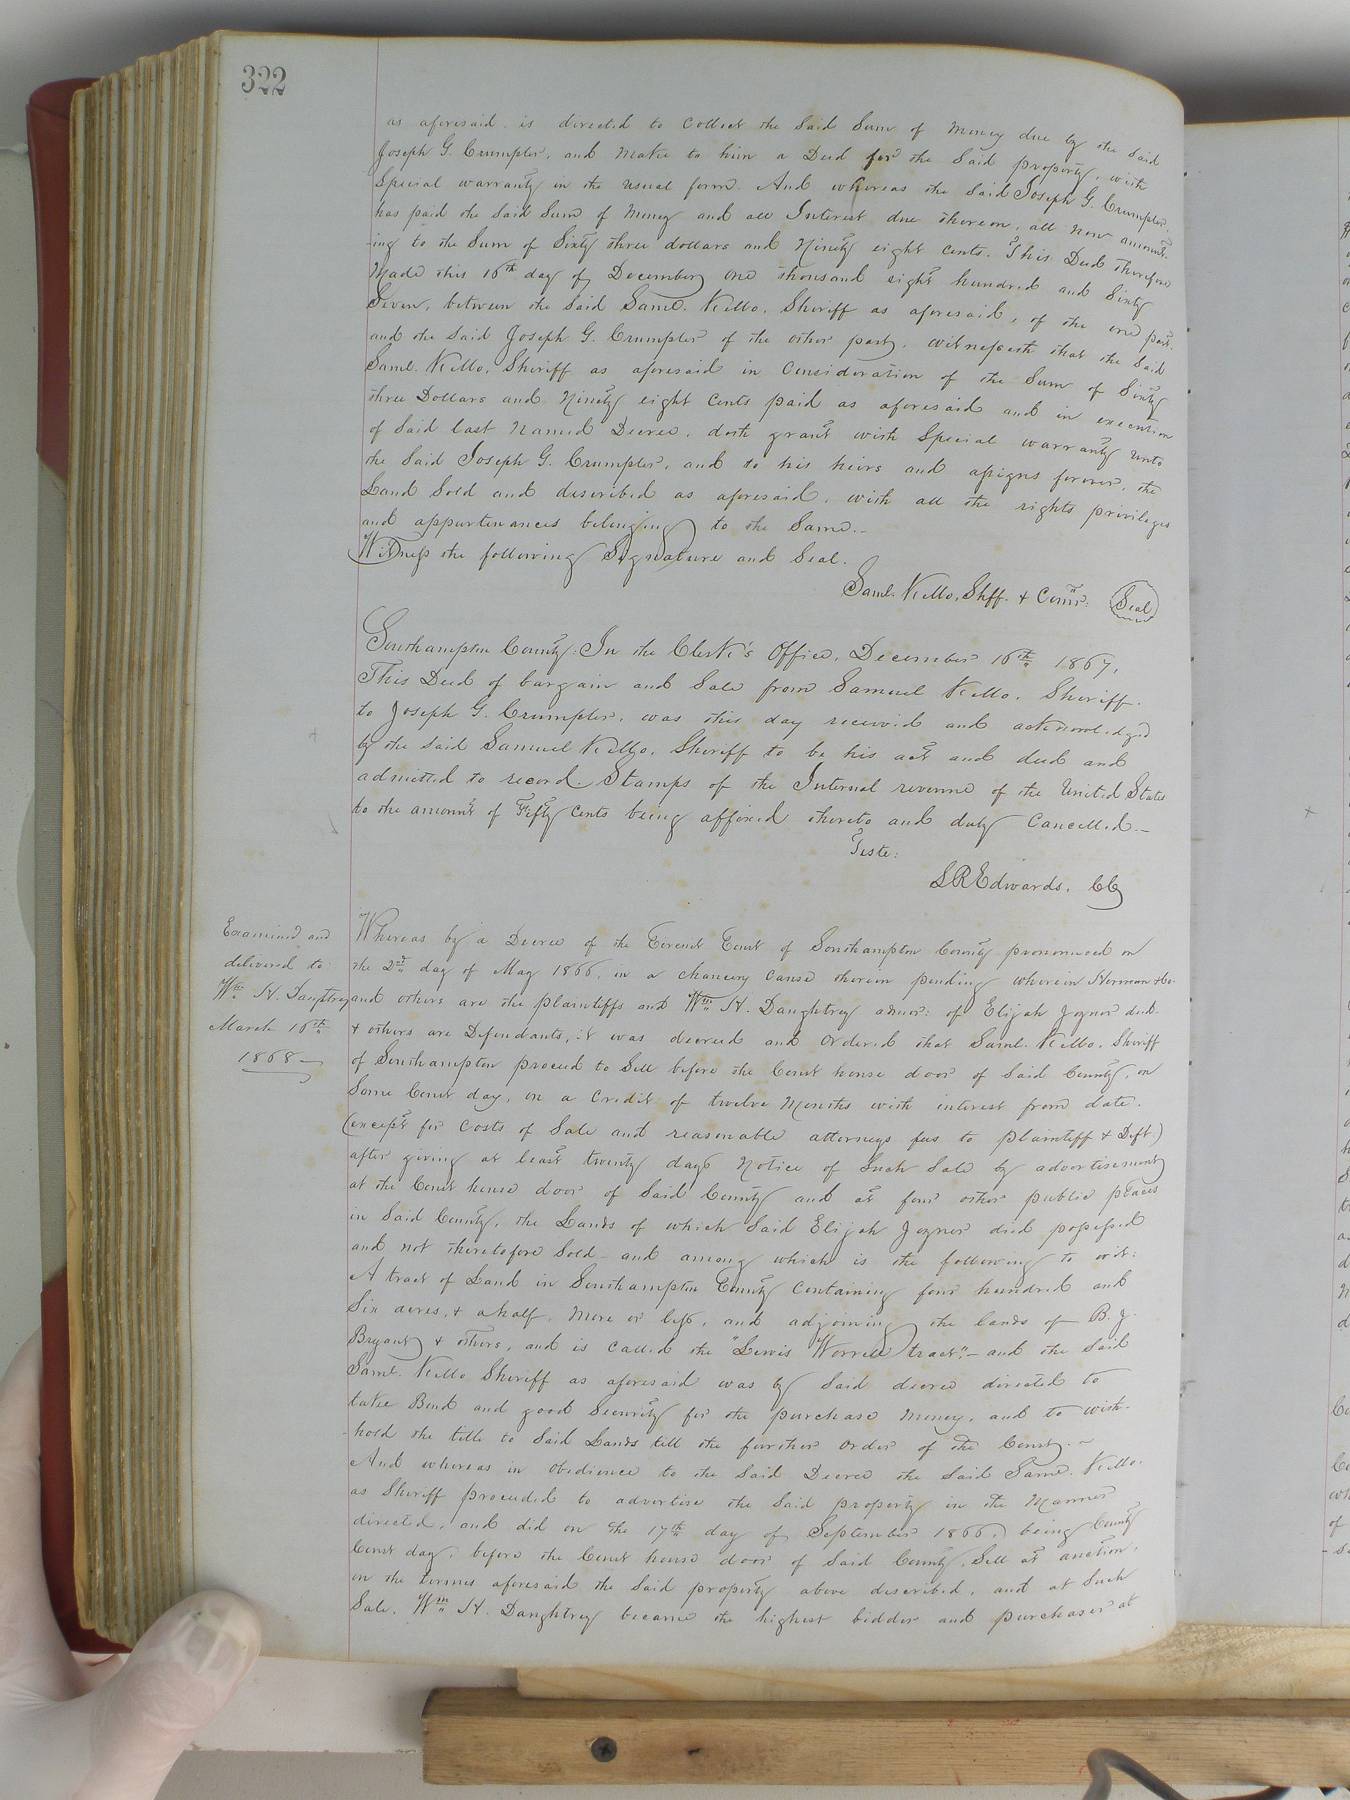 322
as aforesaid is directed to Collect the Said Sum of Money due by the Said
Joseph G. Crumpler, and Make to him a Deed for the Said property, with
Special warranty in the usual form. And whereas the Said Joseph G. Crumpler,
has paid the Said Sum of Money and all Interest due thereon, all now amount-
-ing to the Sum of Sixty three dollars and Ninety eight cents. This Deed therefore
Made this 16th day of December One thousand eight hundred and Sixty
Seven, between the Said Saml. Kello, Sheriff as aforesaid, of the one part.
and the Said Joseph G. Crumpler of the other party, witnesseth that the Said
Saml. Kello, Sheriff as aforesaid in Consideration of the Sum of Sixty
three Dollars and Ninety eight Cents paid as aforesaid and in execution
of Said last Named Decree, doth grant with Special warranty unto
the Said Joseph G. Crumpler, and to his heirs and assigns forever, the
Land Sold and described as aforesaid, with all the rights privileges
and appurtenances belonging to the Same.-
Witness the following Signature and Seal.
Saml. Kello, Shff. + Comr. Seal
Southampton County. In the Clerk's Office, December 16th 1867,
This Deed of bargain and Sale from Samuel Kello, Sheriff.
to Joseph G. Crumpler, was this day received and acknowledged
by the Said Samuel Kello, Sheriff to be his act and deed and
admitted to record. Stamps of the Internal revenue of the United States
to the amount of Fifty Cents being affixed thereto and duly Cancelled.-
Teste:
L R Edwards, CC
Examined and
delivered to
Wm. H. Daughtrey
March 16th
1868
Whereas by a Decree of the Circuit Court of Southampton County pronounced on
the 2nd day of May 1866, in a chancery cause therein pending wherein Herman + Co.
and others are the plaintiffs and Wm. H. Daughtrey admr. of Elijah Joyner decd.
+ others are Defendants, it was decreed and Ordered that Saml. Kello, Sheriff
of Southampton proceed to Sell before the Court house door of Said County, on
Some Court day, on a Credit of twelve Months with interest from date.
(except for Costs of Sale and reasonable attorneys fees to Plaintiff + Deft.)
after giving at least twenty days Notice of Such Sale by advertisement
at the Court house door of Said County and at four other public places
in Said County, the Lands of which Said Elijah Joyner died possessed
and not theretofore Sold - and among which is the following to wit:
A tract of Land in Southampton County Containing four hundred and
Six acres, + a half, More or less, and adjoining the lands of B. J.
Bryant + others, and is called the "Lewis Worrell tract".- and the Said
Saml. Kello Sheriff as aforesaid was by Said decree directed to
take Bond and good Security for the purchase Money, and to with-
-hold the title to Said Lands till the further Order of the Court.-
And whereas in Obedience to the Said Decree the Said Saml. Kello.
as Sheriff proceeded to advertise the Said property in the Manner
directed, and did on the 17th day of September 1866, being County
Court day, before the Court house door of Said County, Sell at auction,
on the terms aforesaid the Said property above described, and at Such
Sale, Wm. H. Daughtrey became the highest bidder and purchaser at